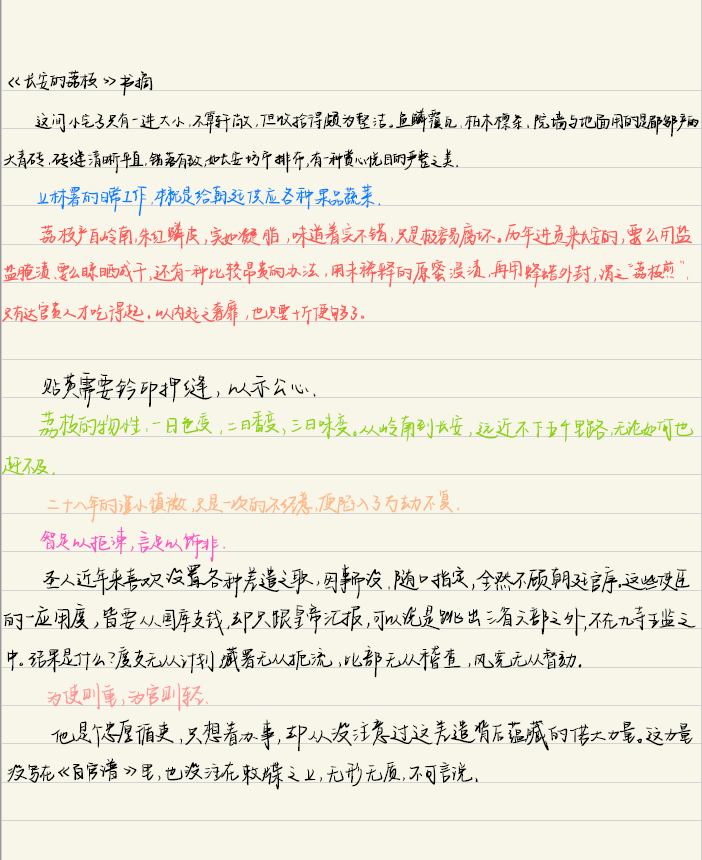 《长安的荔枝》书摘
这间小宅子只有一进大小,不算轩敞,但收拾得颇为整洁。鱼鳞覆瓦,柏木檩条,院墙与地面用的是郿邬产的
大青砖,砖缝清晰平直,错落有致,如长安坊市排布,有一种赏心悦目的严整之美.
上林署的日常工作,本就是给朝廷供应各种果品蔬菜.
荔枝产自岭南,朱红鳞皮,实如凝脂,味道着实不错,只是极容易腐坏。历年进贡来长安的,要么用盐
盐腌渍,要么晾晒成干,还有一种比较昂贵的办法,用未稀释的原蜜浸渍,再用蜂蜡外封,谓之"荔枝煎"
只有达官贵人才吃得起。以内廷之奢靡,也只要十斤便够了。
贴黄需要钤印押缝,以示公心.
荔枝的物性,一日色变,二日香变,三日味变。从岭南到长安,远近不下五千里路,无论如何也
赶不及.
二十八年的谨小慎微,只是一次的不经意,便陷入了万劫不复.
智足以拒谏,言足以饰非.
圣人近年来喜欢设置各种差遣之职,因事而设,随口指定,全然不顾朝廷官序。这些使臣
的一应用度,皆要从国库支钱,却只跟皇帝汇报,可以说是跳出三省六部之外,不在九寺五监之
中。结果是什么?度支无从计划,藏署无从扼流,比部无从稽查,风宪无从督劾.
为使则重,为官则轻.
他是个忠厚循吏,只想着办事,却从没注意过这差遣背后蕴藏的偌大力量。这力量
没写在《百官谱》里,也没注在敕牒之上,无形无质,不可言说.